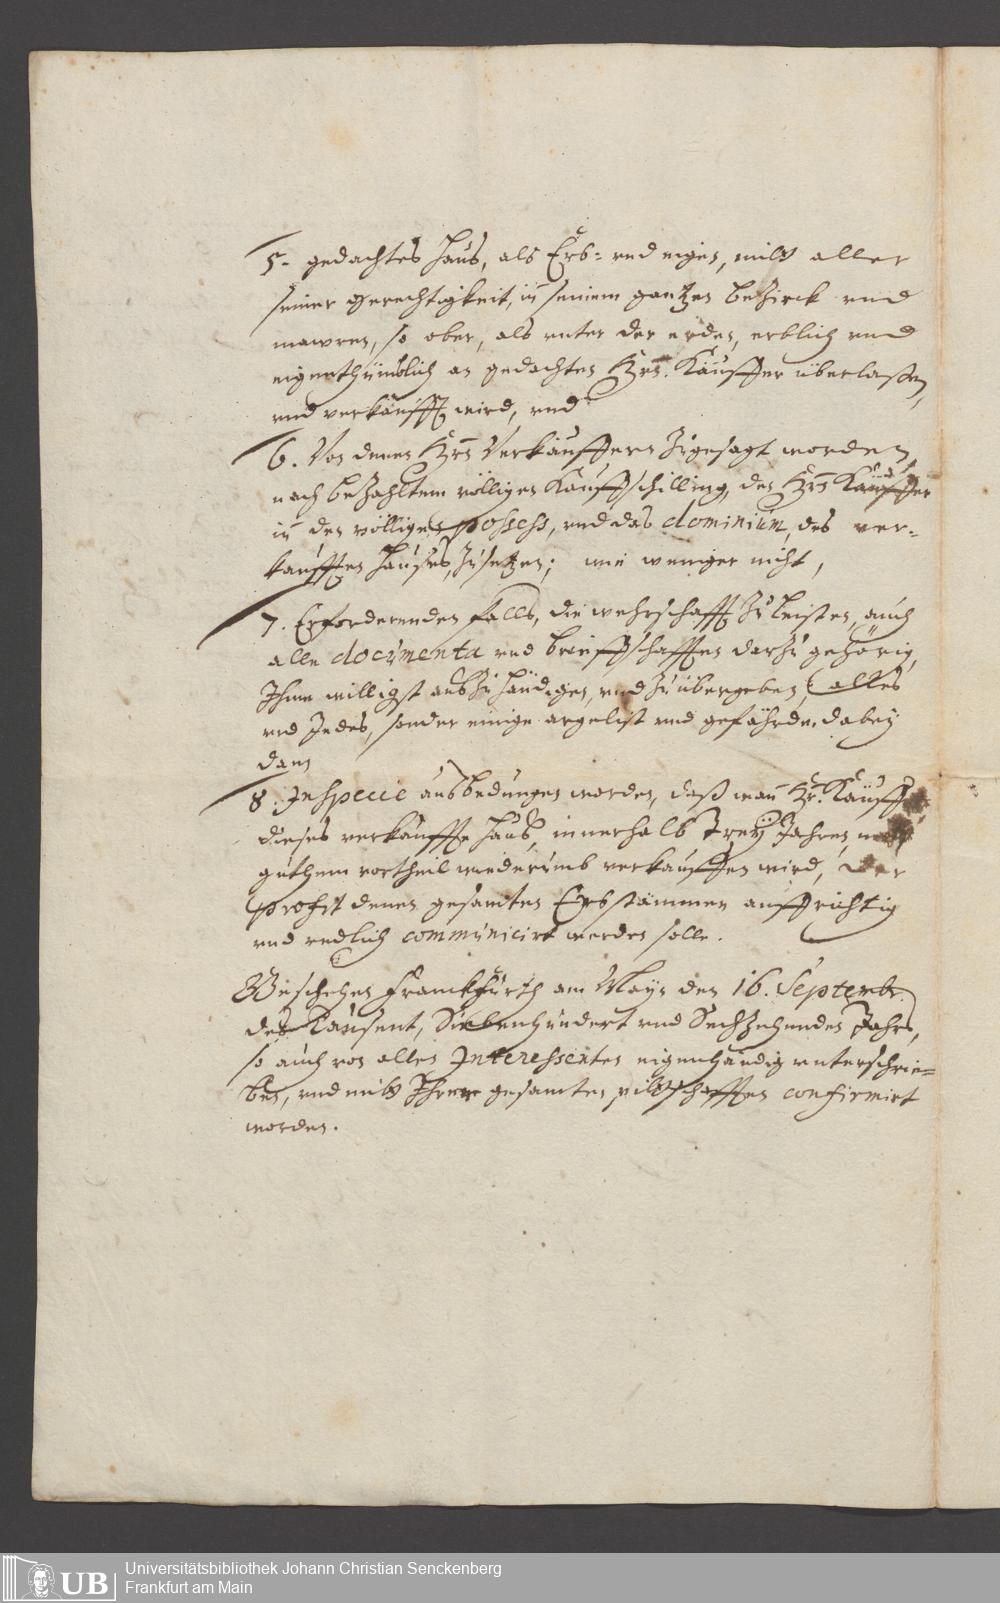 5. gedachtes Hauß, als Erb= und eigen, mitt aller
seiner Gerechtigkeit, in seinem gantzen beZirck und
mawren, so ober, als unter der erden, erblich und
eigenthümblich an gedachten Hrn. Käuffer überlaßen,
und verkaufft wird, und
6. Von denen Hrn Verkäuffern Zugesagt worden,
nach beZahltem völligen Kauffschilling, den Hrn Käuffer
in den völligen possess, und das dominium, des ver-
kaufften Hauses, Zu setzen; wie weniger nicht,
7. Erforderenden falls, die wehrschafft Zu Leisten, auch
alle documenta und brieffschafften darZu gehörig,
Ihme willigst außZuhändigen, und Zu übergeben, alles
und Jedes, sonder einige argelist und gefährde. dabey
dann
8. In specie außbedungen worden, daß wann Hr. Käuffer
dieses verkauffte Hauß, innerhalb Drey Jahren, mitt
guthem vortheil wiederumb verkauffen wird, der
profit denen gesamten Erbstämmen auffrichtig
und redlich communicirt werden solle.
Geschehen Franckfurth am Mayn den 16. Septembr.
des Tausent, Siebenhundert und SechZehenden Jahrs,
so auch von allen Interessenten eigenhändig unterschrie=
ben, und mitt Ihren gesamten pittschafften confirmirt
worden.
UB
Universitätsbibliothek Johann Christian Senckenberg
Frankfurt am Main